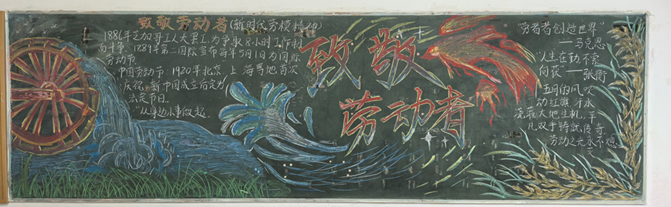 致敬劳动者(新时代劳模精神)
1886年芝加哥工人大罢工为争取8小时工作制
而斗争。1889年第二国际宣布每年5月1日为国际
劳动节
中国劳动节 1920年北京 上海等地首次
庆祝,新中国成立后定为
法定节日。
从身边小事做起。
致敬
劳动者
劳动者创造世界"
——马克思
人生在勤,不索
何获 ——张衡
五月的风吹
动红旗 汗水
浇灌大地生机,平
凡双手铸就传奇
劳动之光永不熄